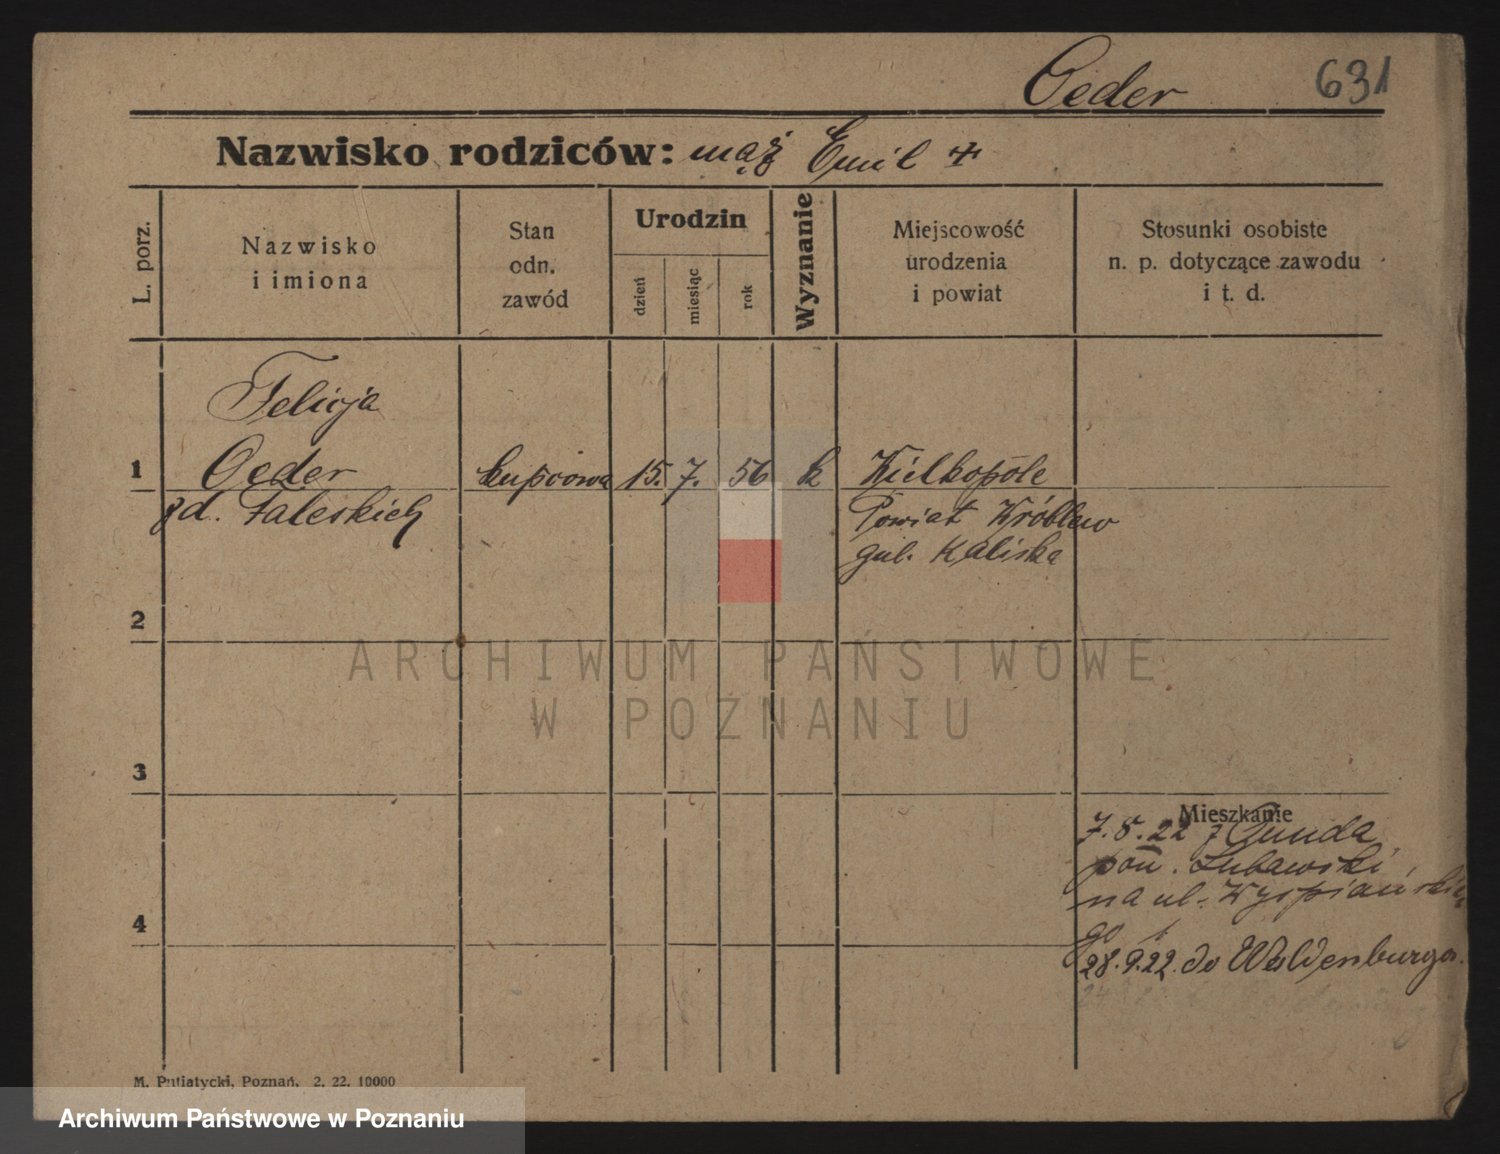 Oeder 631
Nazwisko rodziców: mąż Emil +
L. porz.
Nazwisko
i imiona
Stan
odn.
zawód
Urodzin
dzień
miesiąc
rok
Wyznanie
Miejscowość
urodzenia
i powiat
Stosunki osobiste
n. p. dotyczące zawodu
i t. d.
Felicja
1 Oeder kupcowa 15. 7. 56 k Wielkopole
zd. Zaleskich Powiat Wróblew
gub. Kaliska
2
3
Mieszkanie
7.5.22 z
pow. Lubawski
na ul. Wyspiańskie
4 go 1
28.9.22. do Waldenburga.
M. Putiatycki, Poznań, 2. 22. 10000
ARCHIWUM PAŃSTWOWE
W POZNANIU
Archiwum Państwowe w Poznaniu